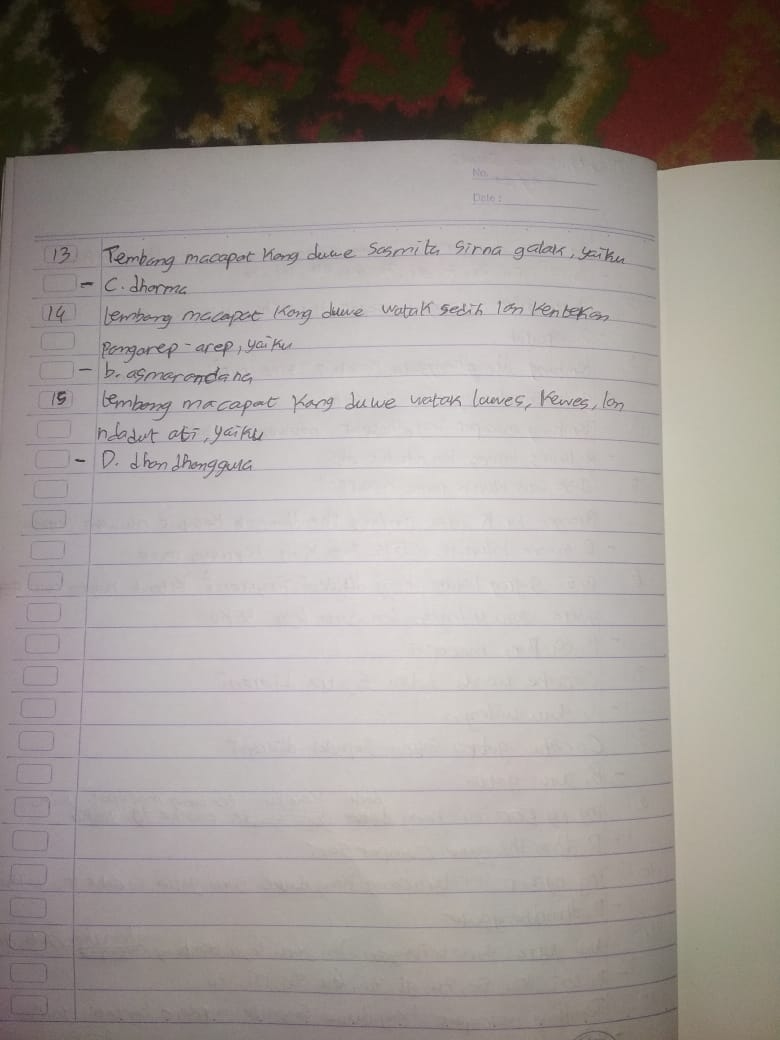 No.
Date :
13 Tembang macapat kang duwe Sasmita Sirna galak, yaiku
- C. dharma
14 tembang macapat kang duwe watak sedih lan kentekan
pangarep-arep, yaiku
- b. asmarandana
15 tembang macapat kang duwe watak luwes, kewes, lan
ndadut ati, yaiku
- D. dhandhanggula